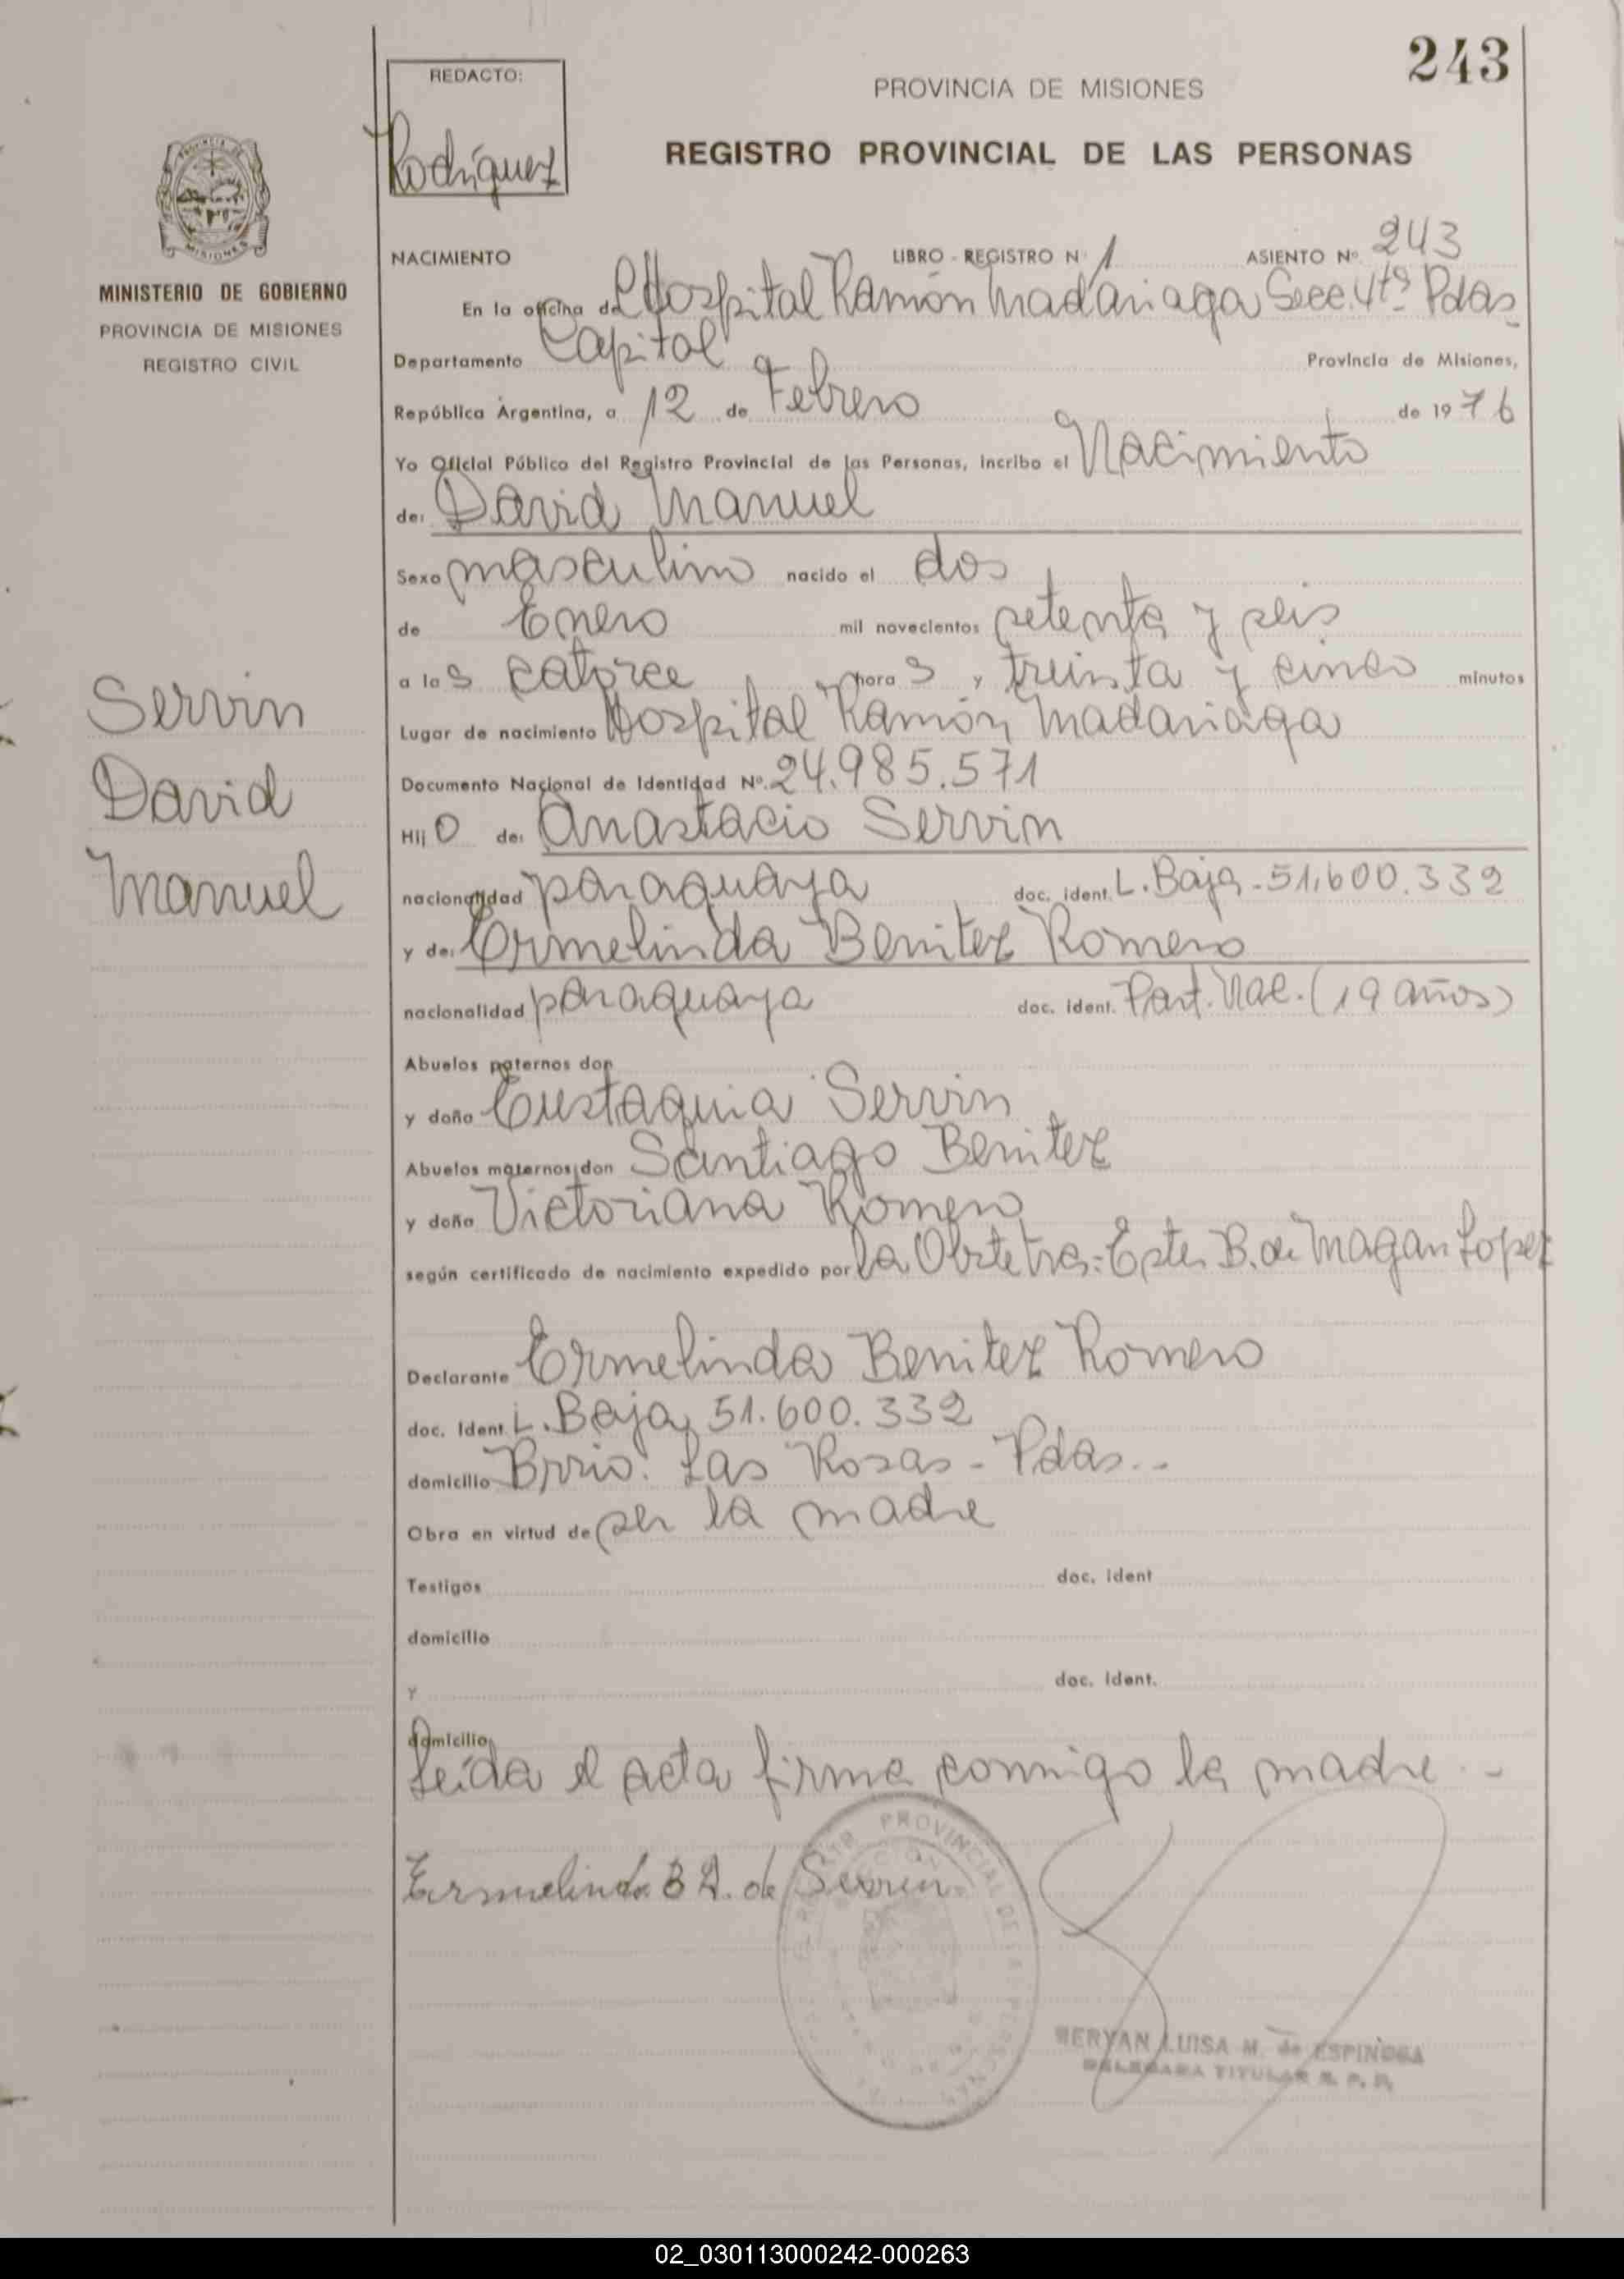 243
REDACTO:
Rodríguez
PROVINCIA DE MISIONES
REGISTRO PROVINCIAL DE LAS PERSONAS
MINISTERIO DE GOBIERNO
PROVINCIA DE MISIONES
REGISTRO CIVIL
Servin
David
Manuel
NACIMIENTO LIBRO - REGISTRO N° 1 ASIENTO N° 243
En la oficina del Hospital Ramón Madariaga Secc. 4ta Pdas
Departamento Capital Provincia de Misiones,
República Argentina, a 12 de Febrero de 1976
Yo Oficial Público del Registro Provincial de las Personas, incribo el Nacimiento
de: David Manuel
Sexo masculino nacido el dos
de Enero mil novecientos setenta y seis
a las catorce horas y treinta y cinco minutos
Lugar de nacimiento Hospital Ramón Madariaga
Documento Nacional de Identidad N° 24.985.571
Hijo de: Anastacio Servin
nacionalidad paraguaya doc. ident. L. Baja - 51.600.332
y de: Ermelinda Benitez Romero
nacionalidad paraguaya doc. ident. Part. Nac. (19 años)
Abuelos paternos don
y doña Eustaquia Servin
Abuelos maternos don Santiago Benitez
y doña Victoriana Romero
según certificado de nacimiento expedido por la Obstetra: Ester B. de Magan Lopez
Declarante Ermelinda Benitez Romero
doc. Ident L. Baja 51.600.332
domicilio Brrio: Las Rosas - Pdas..
Obra en virtud de ser la madre
Testigos doc. ident
domicilio
y doc. ident.
domicilio
Leída el acta firma conmigo la madre
Ermelinda B de Servin
REGISTRO PROVINCIAL DE LAS PERSONAS
LUISA M. de ESPINOSA
DELEGADA TITULAR R. P. P.
02_030113000242-000263